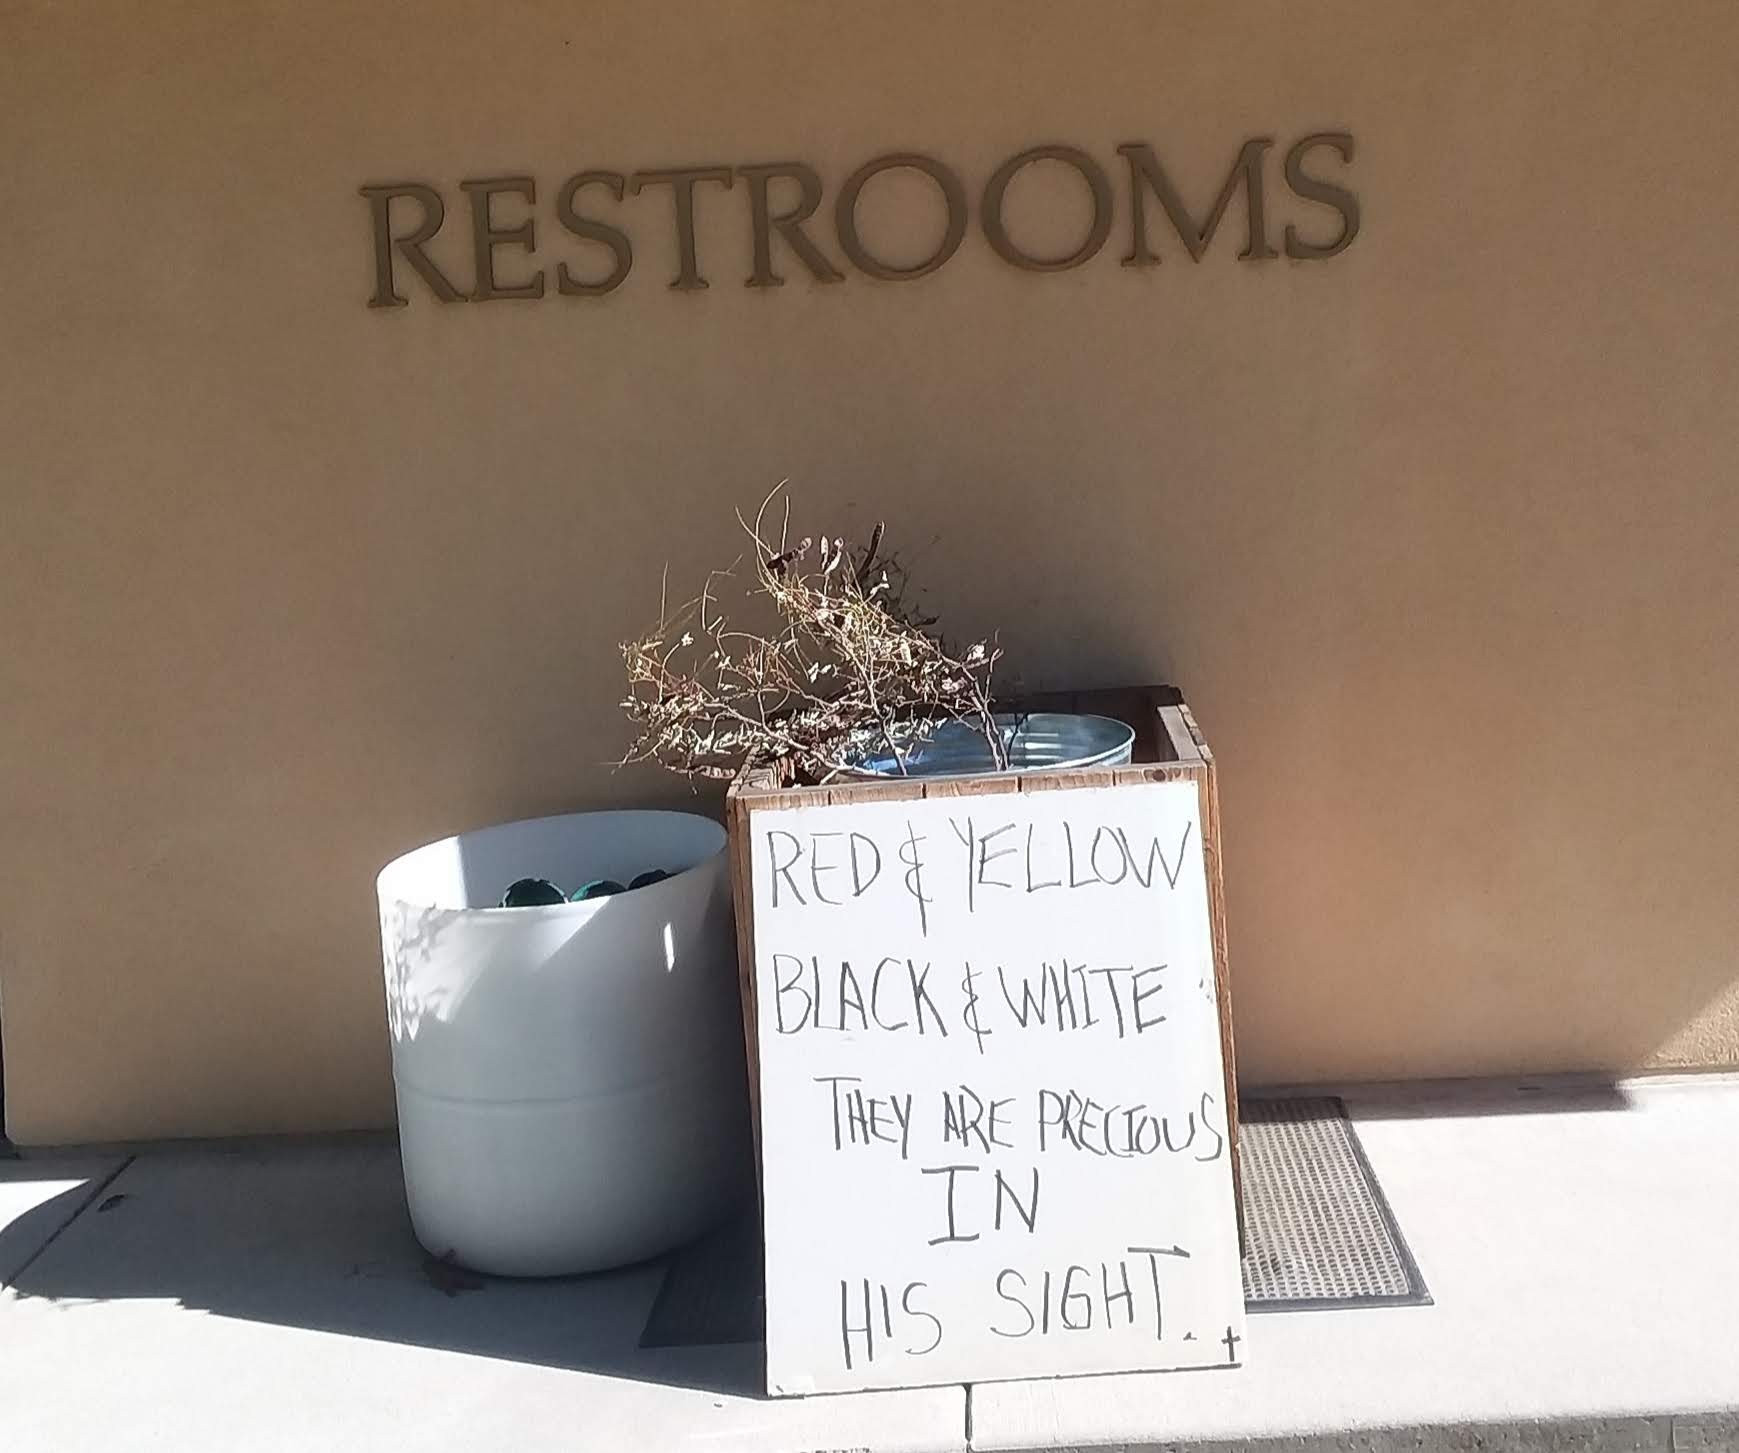 RESTROOMS
RED & YELLOW
BLACK & WHITE
THEY ARE PRECIOUS
IN
HIS SIGHT.